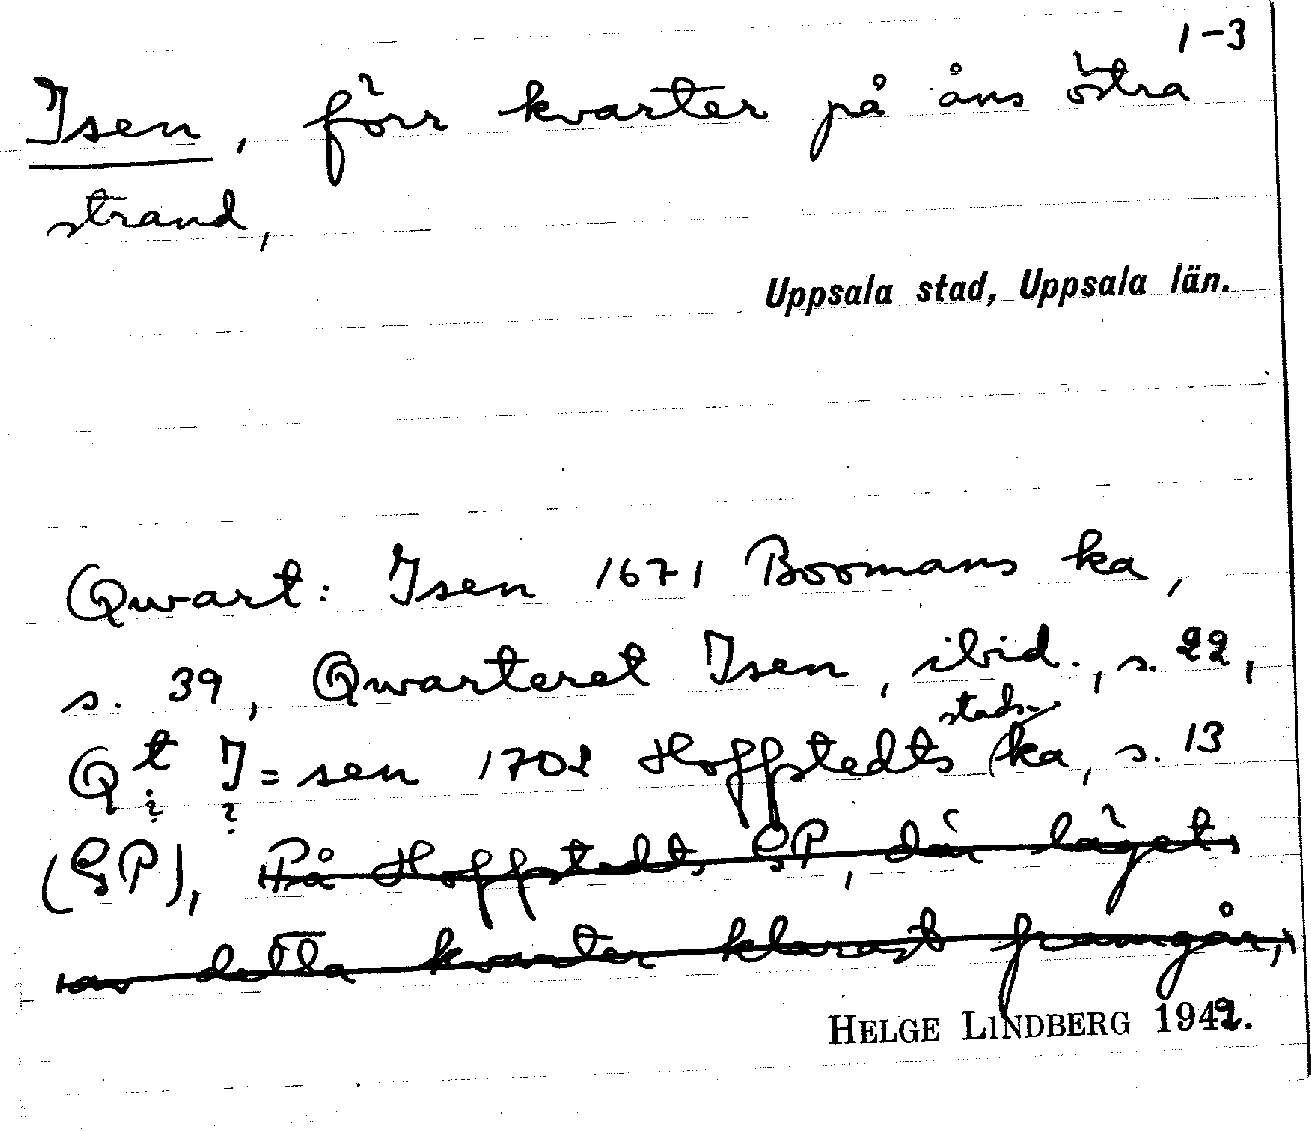 1-3
Isen, förr kvarter på åns östra
strand,
Uppsala stad, Uppsala län.
Qwart: Isen 1671 Boomans ka,
s. 39, Qwarteret Isen, ibid., s. 22,
stads-
Qt I=sen 1702 Hoffstedts ka, s. 13
(GP), På Hoffstedts GP, där läget
av detta kvarter klarast framgår,
HELGE LINDBERG 1942.